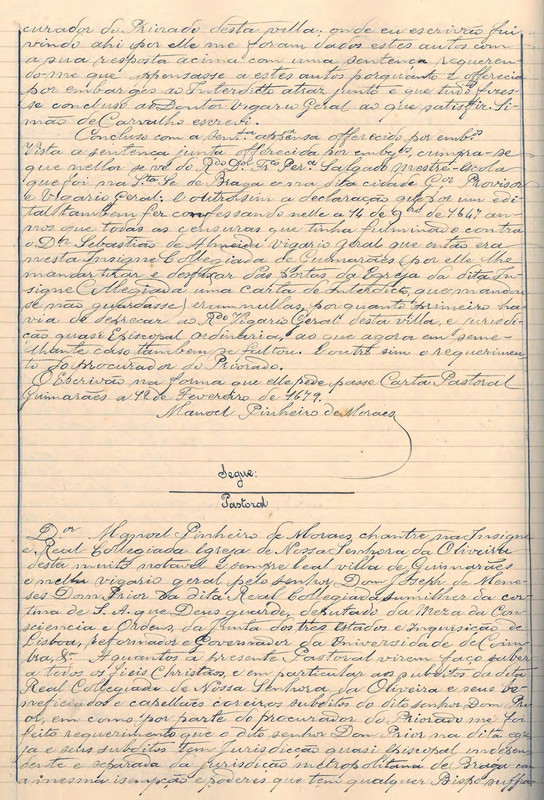 curador do Priorado desta villa: onde eu escrivão fui
vindo ahi por elle me foram dados estes autos com
a sua resposta acima com uma sentença requeren
do-me que appensasse a estes autos porquanto a offerecia
por embargos ao Interdicto atraz junto e que tudo fizes-
se concluso ao Doutor Vigario Geral ao que satisfiz. Si-
mão de Carvalho escrevi.
Concluso com a sentª appensa offerecida por embos
Vista a sentença junta offerecida por embgos, cumpra-se
que nella se vê do Rdo Dor Frco Perª Salgado mestre-escola
que foi na Sta Sé de Braga e na dita cidade Cor Provisor
e Vigario Geral. E outrosim a declaração que por um edi-
tal tambem fez confessando nelle a 14 de de 1647 an-
nos que todas as censuras que tinha fulminado contra
o Dor Sebastião de Almeida vigario geral que então era
nesta Insigne Collegiada de Guimarães (por elle lhe
mandar tirar e despegar das portas da Egreja da dita In-
signe Collegiada uma carta de Interdicto, que mandou
se não guardasse) eram nullas, por quanto primeiro ha-
via de deprecar ao Rdo Vigario Geral desta villa, e jurisdi-
ção quasi Episcopal ordinaria, ao que agora em seme-
lhante caso tambem se faltou. E outro sim o requerimen-
to do procurador do Priorado.
O Escrivão na forma que elle pede passe Carta Pastoral
Guimarães a 12 de Fevereiro de 1679.
Manoel Pinheiro de Moraes
Segue:
Pastoral
Dor Manoel Pinheiro de Moraes chantre na Insigne
e Real Collegiada Igreja de Nossa Senhora da Oliveira
desta muito notavel e sempre leal villa de Guimarães
e nella vigario geral pelo senhor Dom Joseph de Mene-
ses Dom Prior da dita Real Collegiada sumilher da cor-
tina de S. A. que Deus guarde, deputado da Meza da Con-
sciencia e Ordens, da Junta dos tres Estados e Inquisição de
Lisboa, reformador e Governador da Universidade de Coim-
bra, &. Aquantos a presente Pastoral virem faço saber
a todos os fieis Christãos, e em particular aos subditos da dita
Real Collegiada de Nossa Senhora da Oliveira e seus be-
neficiados e capellães coreiros subditos do dito senhor Dom Pri-
or, em como por parte do procurador do Priorado me foi
feito requerimento que o dito senhor Dom Prior na dita egre-
ja e seus subditos tem jurisdicção quasi episcopal indepen-
dente e separada da jurisdição metropolitana de Braga com
a mesma isempção e poderes que tem qualquer Bispo suffra-